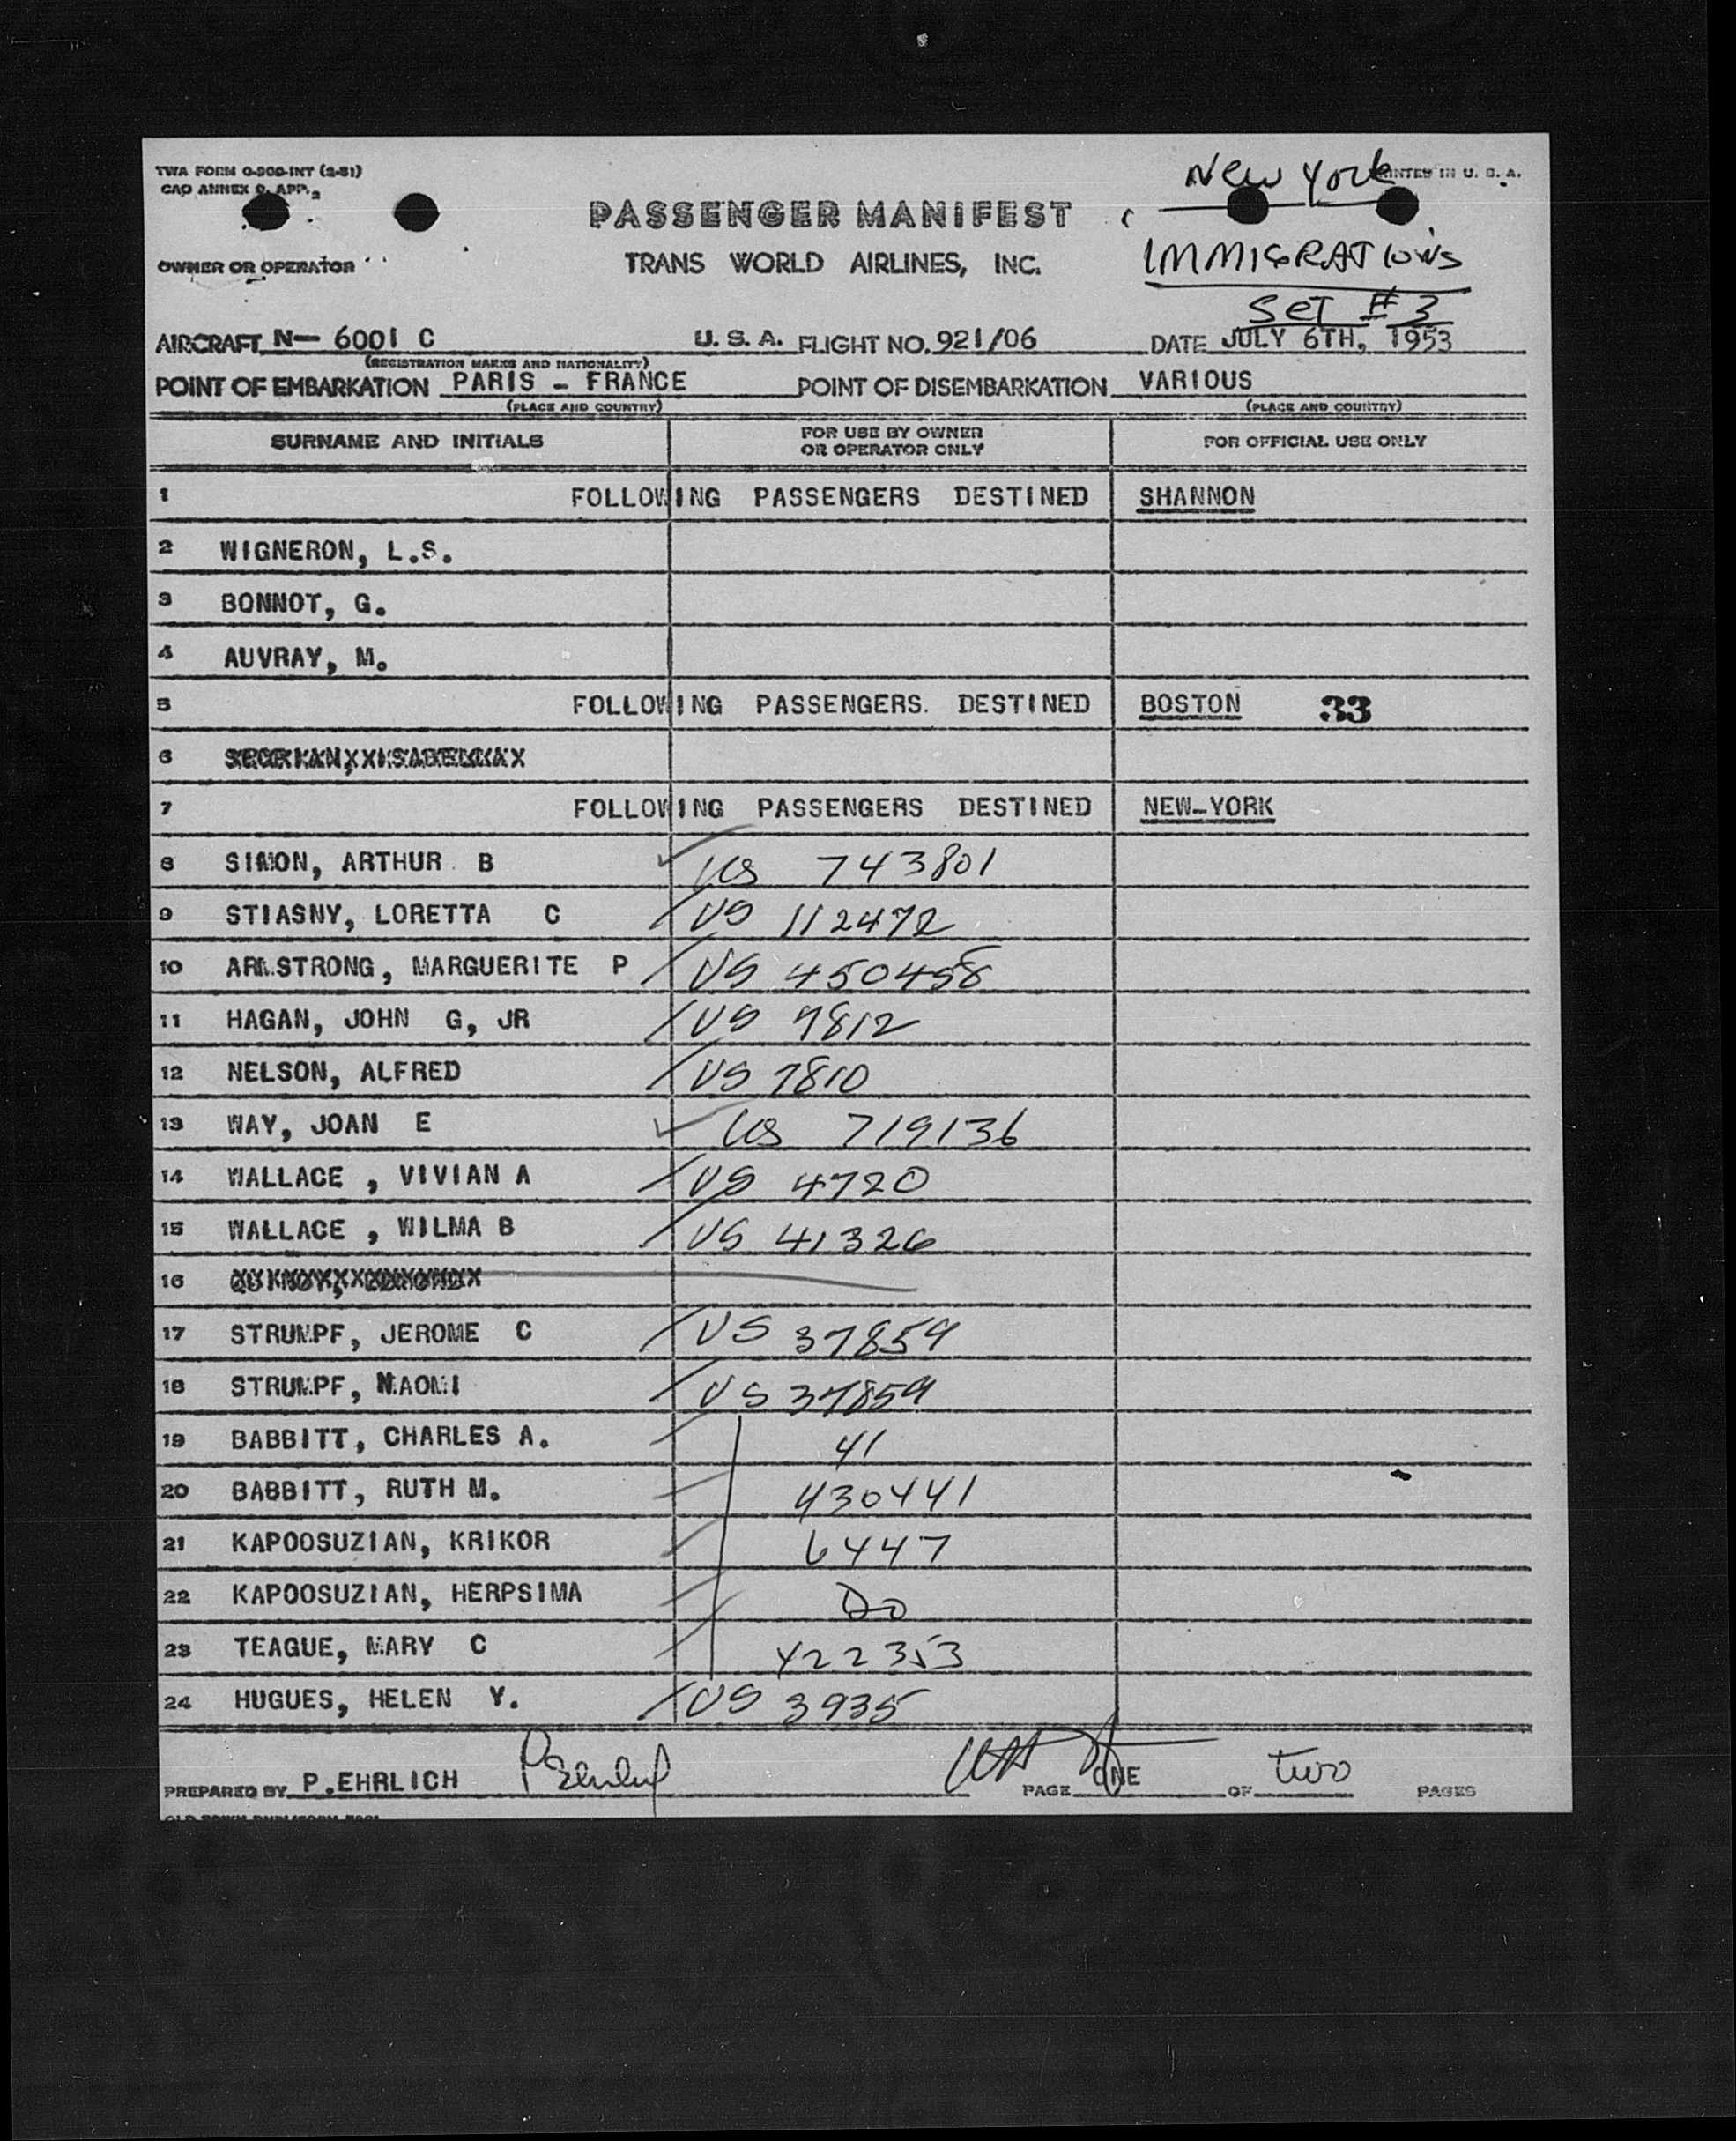 TWA FORM O-200-INT (2-51)
CAO ANNEX 9, APP. 2
New York
PRINTED IN U. S. A.
PASSENGER MANIFEST
IMMIGRATIONS
OWNER OR OPERATOR
TRANS WORLD AIRLINES, INC.
SET # 3
AIRCRAFT N- 6001 C U. S. A. FLIGHT NO. 921/06 DATE JULY 6TH, 1953
(REGISTRATION MARKS AND NATIONALITY)
POINT OF EMBARKATION PARIS - FRANCE POINT OF DISEMBARKATION VARIOUS
(PLACE AND COUNTRY) (PLACE AND COUNTRY)
SURNAME AND INITIALS FOR USE BY OWNER OR OPERATOR ONLY FOR OFFICIAL USE ONLY
1 FOLLOWING PASSENGERS DESTINED SHANNON
2 WIGNERON, L.S.
3 BONNOT, G.
4 AUVRAY, M.
5 FOLLOWING PASSENGERS. DESTINED BOSTON 33
6
7 FOLLOWING PASSENGERS DESTINED NEW-YORK
8 SIMON, ARTHUR B US 743801
9 STIASNY, LORETTA C US 112472
10 ARMSTRONG, MARGUERITE P US 450458
11 HAGAN, JOHN G, JR US 7812
12 NELSON, ALFRED US 7810
13 WAY, JOAN E US 719136
14 WALLACE , VIVIAN A US 4720
15 WALLACE , WILMA B US 41326
16
17 STRUMPF, JEROME C US 37859
18 STRUMPF, NAOMI US 37859
19 BABBITT, CHARLES A. 41
20 BABBITT, RUTH M. 430441
21 KAPOOSUZIAN, KRIKOR 6447
22 KAPOOSUZIAN, HERPSIMA Do
23 TEAGUE, MARY C 422353
24 HUGUES, HELEN Y. US 3935
PREPARED BY P.EHRLICH PAGE ONE OF two PAGES